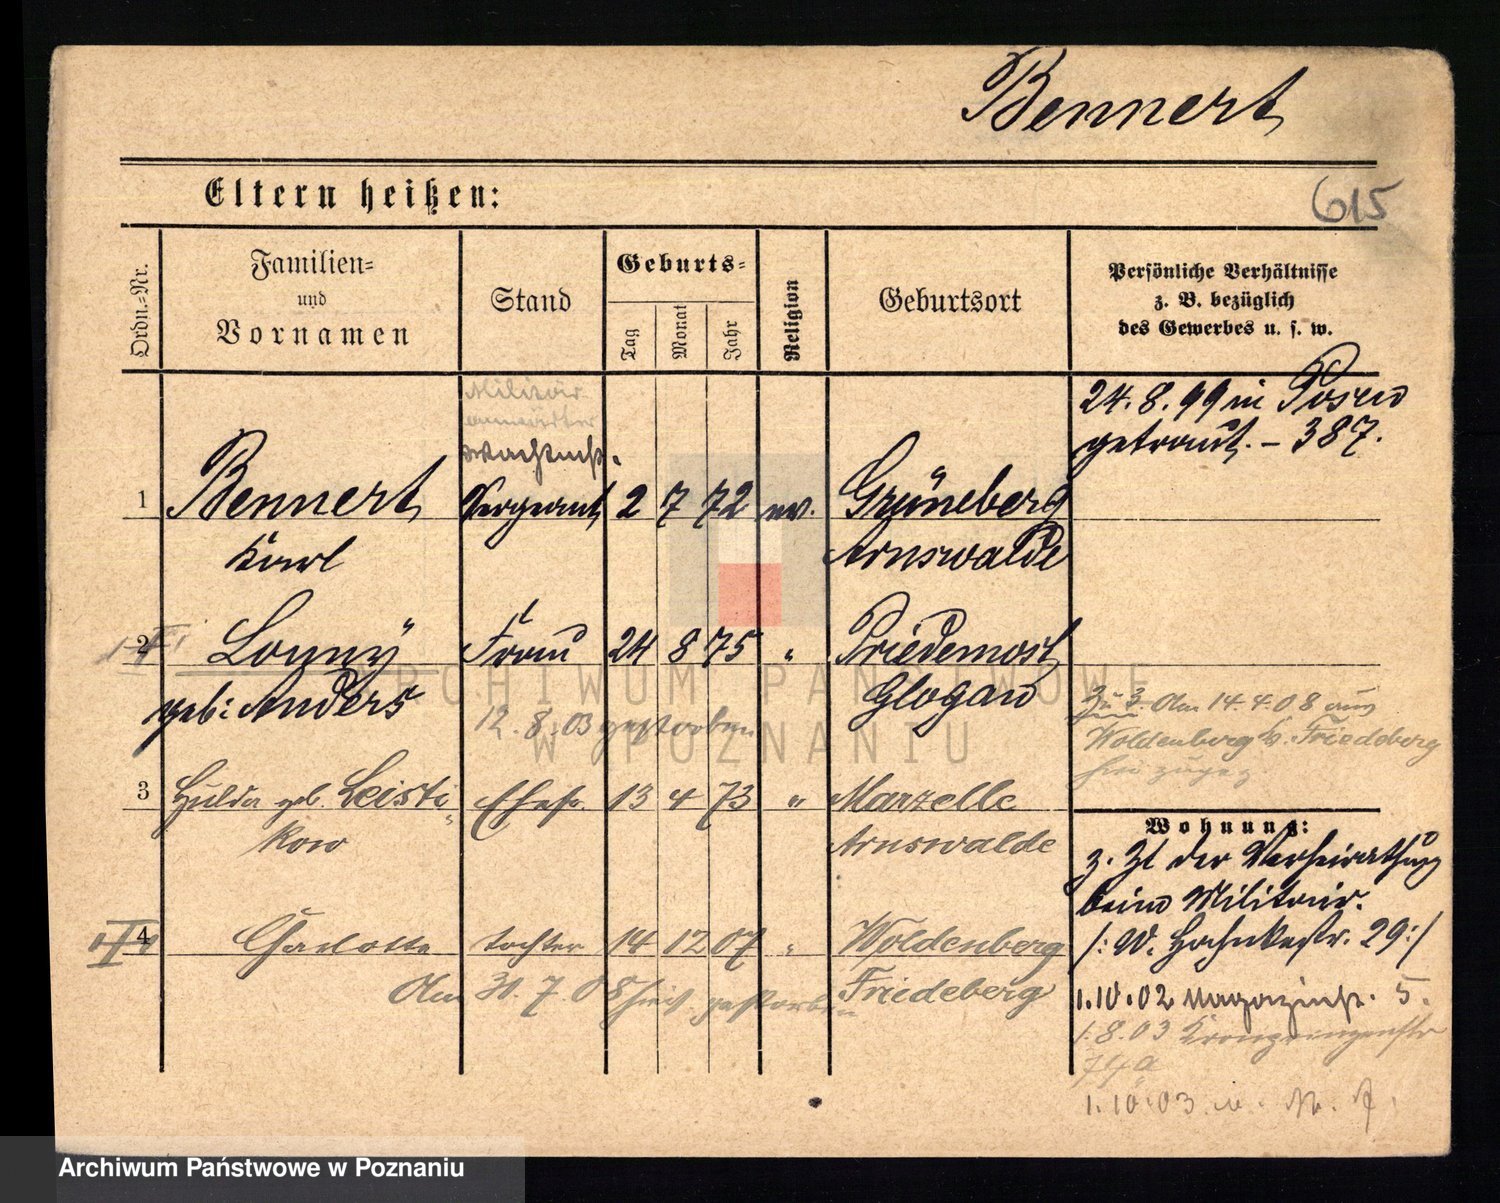 Bennert
Eltern heißen:
615
Ordn.-Nr.
Familien-
und
Vornamen
Stand
Geburts-
Tag
Monat
Jahr
Religion
Geburtsort
Persönliche Verhältnisse
z. B. bezüglich
des Gewerbes u. s. w.
24. 8. 99 in Posen
getraut. – 387.
Militär
anwärter
Wachtmstr.
1 Bennert Sergeant 2 7 72 ev. Grüneberg
Karl Arnswalde
2 Frau 24 8 75 " Priedemost
geb: Anders Glogau
12. 8. 03 gestorben
Zu 3. Am 14. 4. 08 aus
Woldenberg Kr. Friedeberg
hier zugez.
3 Hulda geb. Leisti Ehefr. 13 4 73 " Marzelle
kow Arnswalde
Wohnung:
z. Zt der Verheirathung
beim Militair.
4 Charlotte tochter 14 12 07 " Woldenberg
/: W. 29 :/
Am 31. 7. 08 hier gestorben Friedeberg
1. 10. 02 Magazinstr. 5.
1. 8. 03 Kronprinzenstr
74a
1. 10. 03
ARCHIWUM PAŃSTWOWE
W POZNANIU
Archiwum Państwowe w Poznaniu